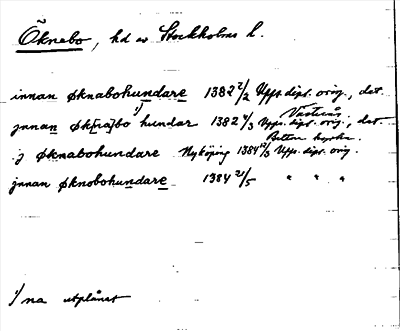 Öknebo, hd av Stockholms l.
innan øknabohundare 1382 2/2 Upps. dipl. orig., dat.
jnnan øk[na]bo¹⁾ hundar 1382 4/3 Upps. dipl. orig., dat. Västerås
j øknabohundare Nyköping 1384 12/3 Upps. dipl. orig.
jnnan øknobohundare 1384 21/5 " " "
¹⁾ na utplånat